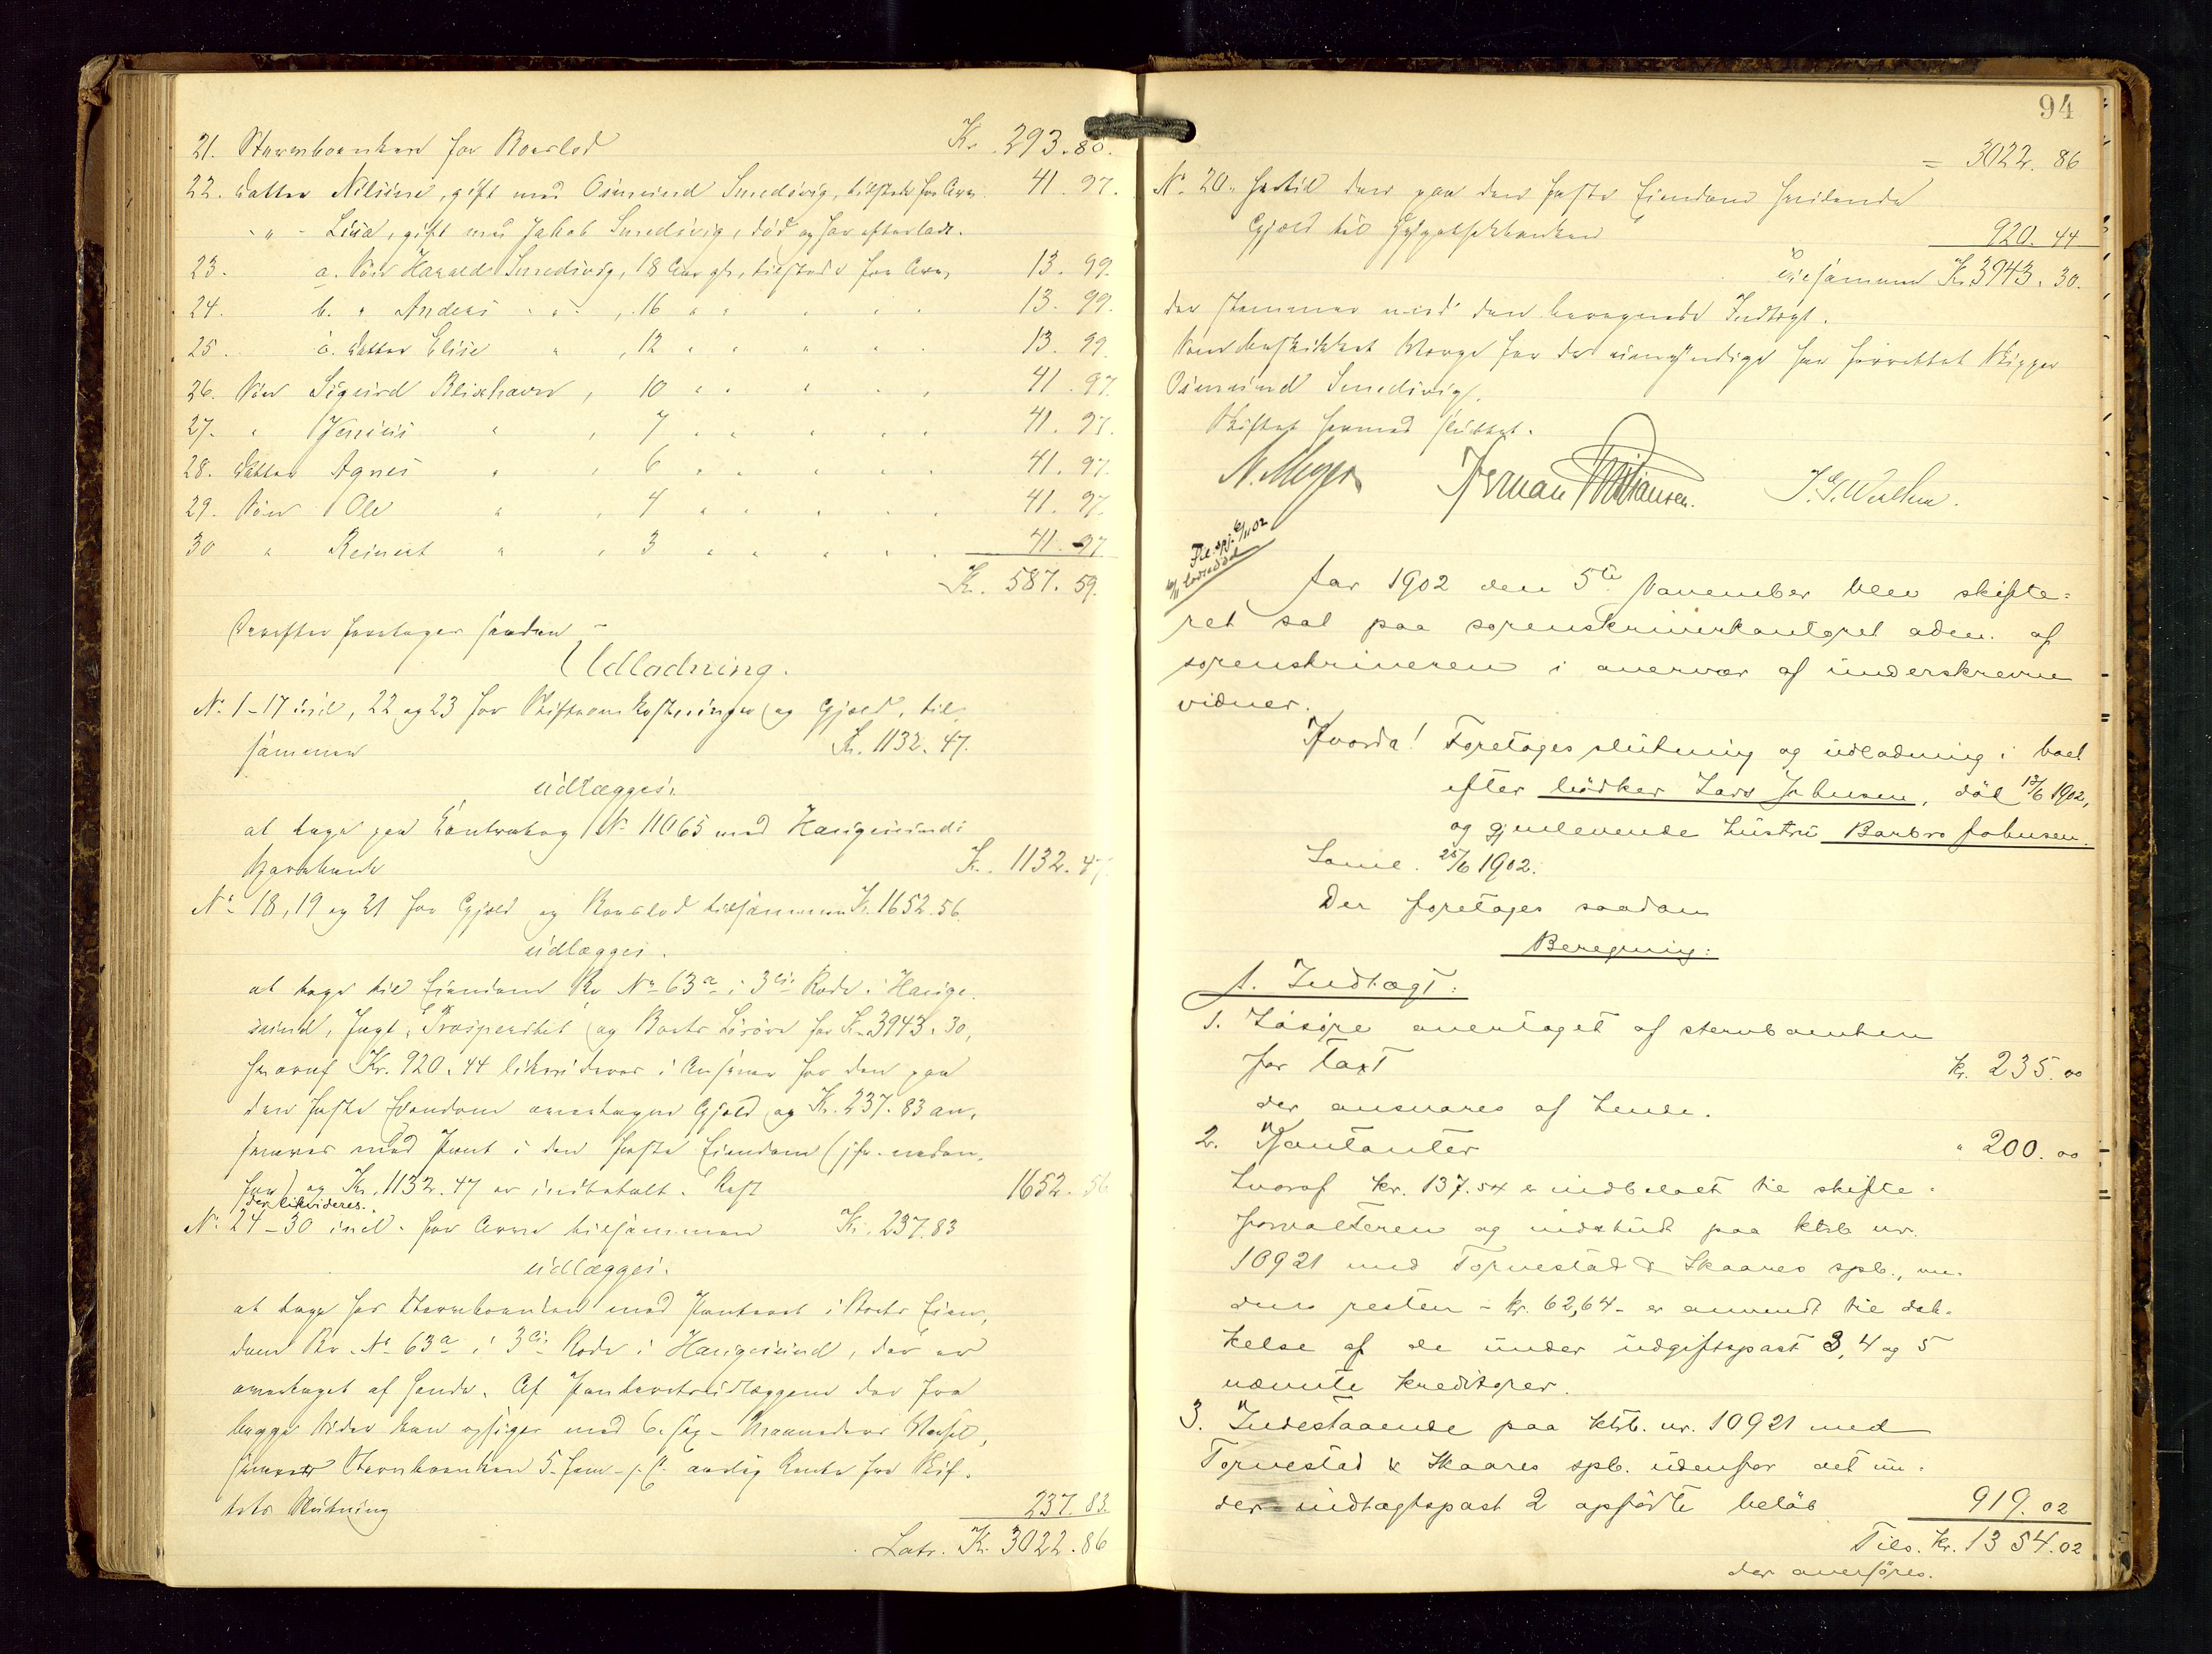 21. Stervboenken for Boeslod Kr. 293.80.
22. Datter Nilsine, gift med Osmund Smedsvig, tilstede for Arv. 41.97.
- " - Lisa, gift med Jakob Smedsvig, død og har efterladt.
23. a. Søn Harald Smedsvig, 18 Aar gl., tilstede for Arv, 13.99.
24. b. " Anders " " , 16 " " " " " 13.99.
25. c. Datter Elise " , 12 " " " " " 13.99
26. Søn Sigurd Blixhavn , 10 " " " " 41.97.
27. " Jenius " , 7 " " " " " 41.97.
28. Datter Agnes " , 6 " " " " " 41.97.
29. Søn Ole " , 4 " " " " " 41.97.
30 " Reinert " , 3 " " " " " 41.97
Kr. 587.59.
Derefter foretages saadan -
Udlodning.
No. 1-17 incl, 22 og 23 for Skifteomkostninger og Gjæld, til-
sammen Kr. 1132.47.
udlægges:
at tage paa Kontrabog No. 11065 med Haugesunds
Sparebank Kr. 1132.47
No. 18, 19 og 21 for Gjæld og Boeslod tilsammen Kr. 1652.56.
udlægges.
at tage til Eiendom Br. No. 63a i 3die Rode i Hauge-
sund, Jagt, Prosperitet og Boets Løsøre for Kr. 3943.30,
hvoraf Kr. 920.44 likvideres i Ansvar for den paa
den faste Eiendom overtagne Gjæld og Kr. 237.83 an-
svares med Pant i den faste Eiendom (jfr. neden-
for) og Kr. 1132.47 er indbetalt. Rest 1652.56
der likvideres.
No. 24-30 incl. for Arv tilsammen Kr. 237.83
udlægges.
at tage hos Stervboenken med Panteret i Boets Eien-
dom Br. No. 63a i 3die Rode i Haugesund, der er
overtaget af hende. Af Panteretsudlæggene der fra
begge Sider kan opsiges med 6. sex - Maaneders Varsel,
svarer Stervboenken 5 - fem - p.Ct. aarlig Rente fra Skif-
tets Slutning 237.83.
Latr. Kr. 3022.86
94
= 3022.86
No. 20. Hertil den paa den faste Eiendom hvilende
Gjæld til Hypothekbanken 920.44
Tilsammen Kr. 3943.30.
der stemmer med den beregnede Indtægt.
Som beskikket Værge for de umyndige har forrettet Skipper
Osmund Smedsvig.
Skiftet hermed sluttet.
N. Meyer Herman Johansen. J. G. Wathne.
6/11 02
Aar 1902 den 5te November blev skifte-
ret sat paa sorenskriverkontoret adm. af
sorenskriveren i overvær af underskrevne
vidner.
Hvorda! Foretages slutning og udlodning i boet
efter bødker Lars Johnsen, død 12/6 1902,
og gjenlevende hustru Barbro Johnsen.
Lovl. 25/6 1902.
Der foretages saadan
Beregning:
A. Indtægt:
1. Løsøre overtaget af stervboenken
for taxt kr. 235.00
der ansvares af hende.
2. Kontanter " 200.00
hvoraf kr. 137.54 er indbetalt til skifte-
forvalteren og indskudt paa ktrb nr.
10921 med Torvestad & Skaares spb., me-
dens resten - kr. 62,64 - er anvendt til dæk-
kelse af de under udgiftspost 3, 4 og 5
nævnte kreditorer.
3. Indestaaende paa ktrb. nr. 10921 med
Torvestad & Skaares spb. udenfor det un-
der indtægtspost 2 opførte beløb 919.02
Tils. kr. 1354.02
der overføres.